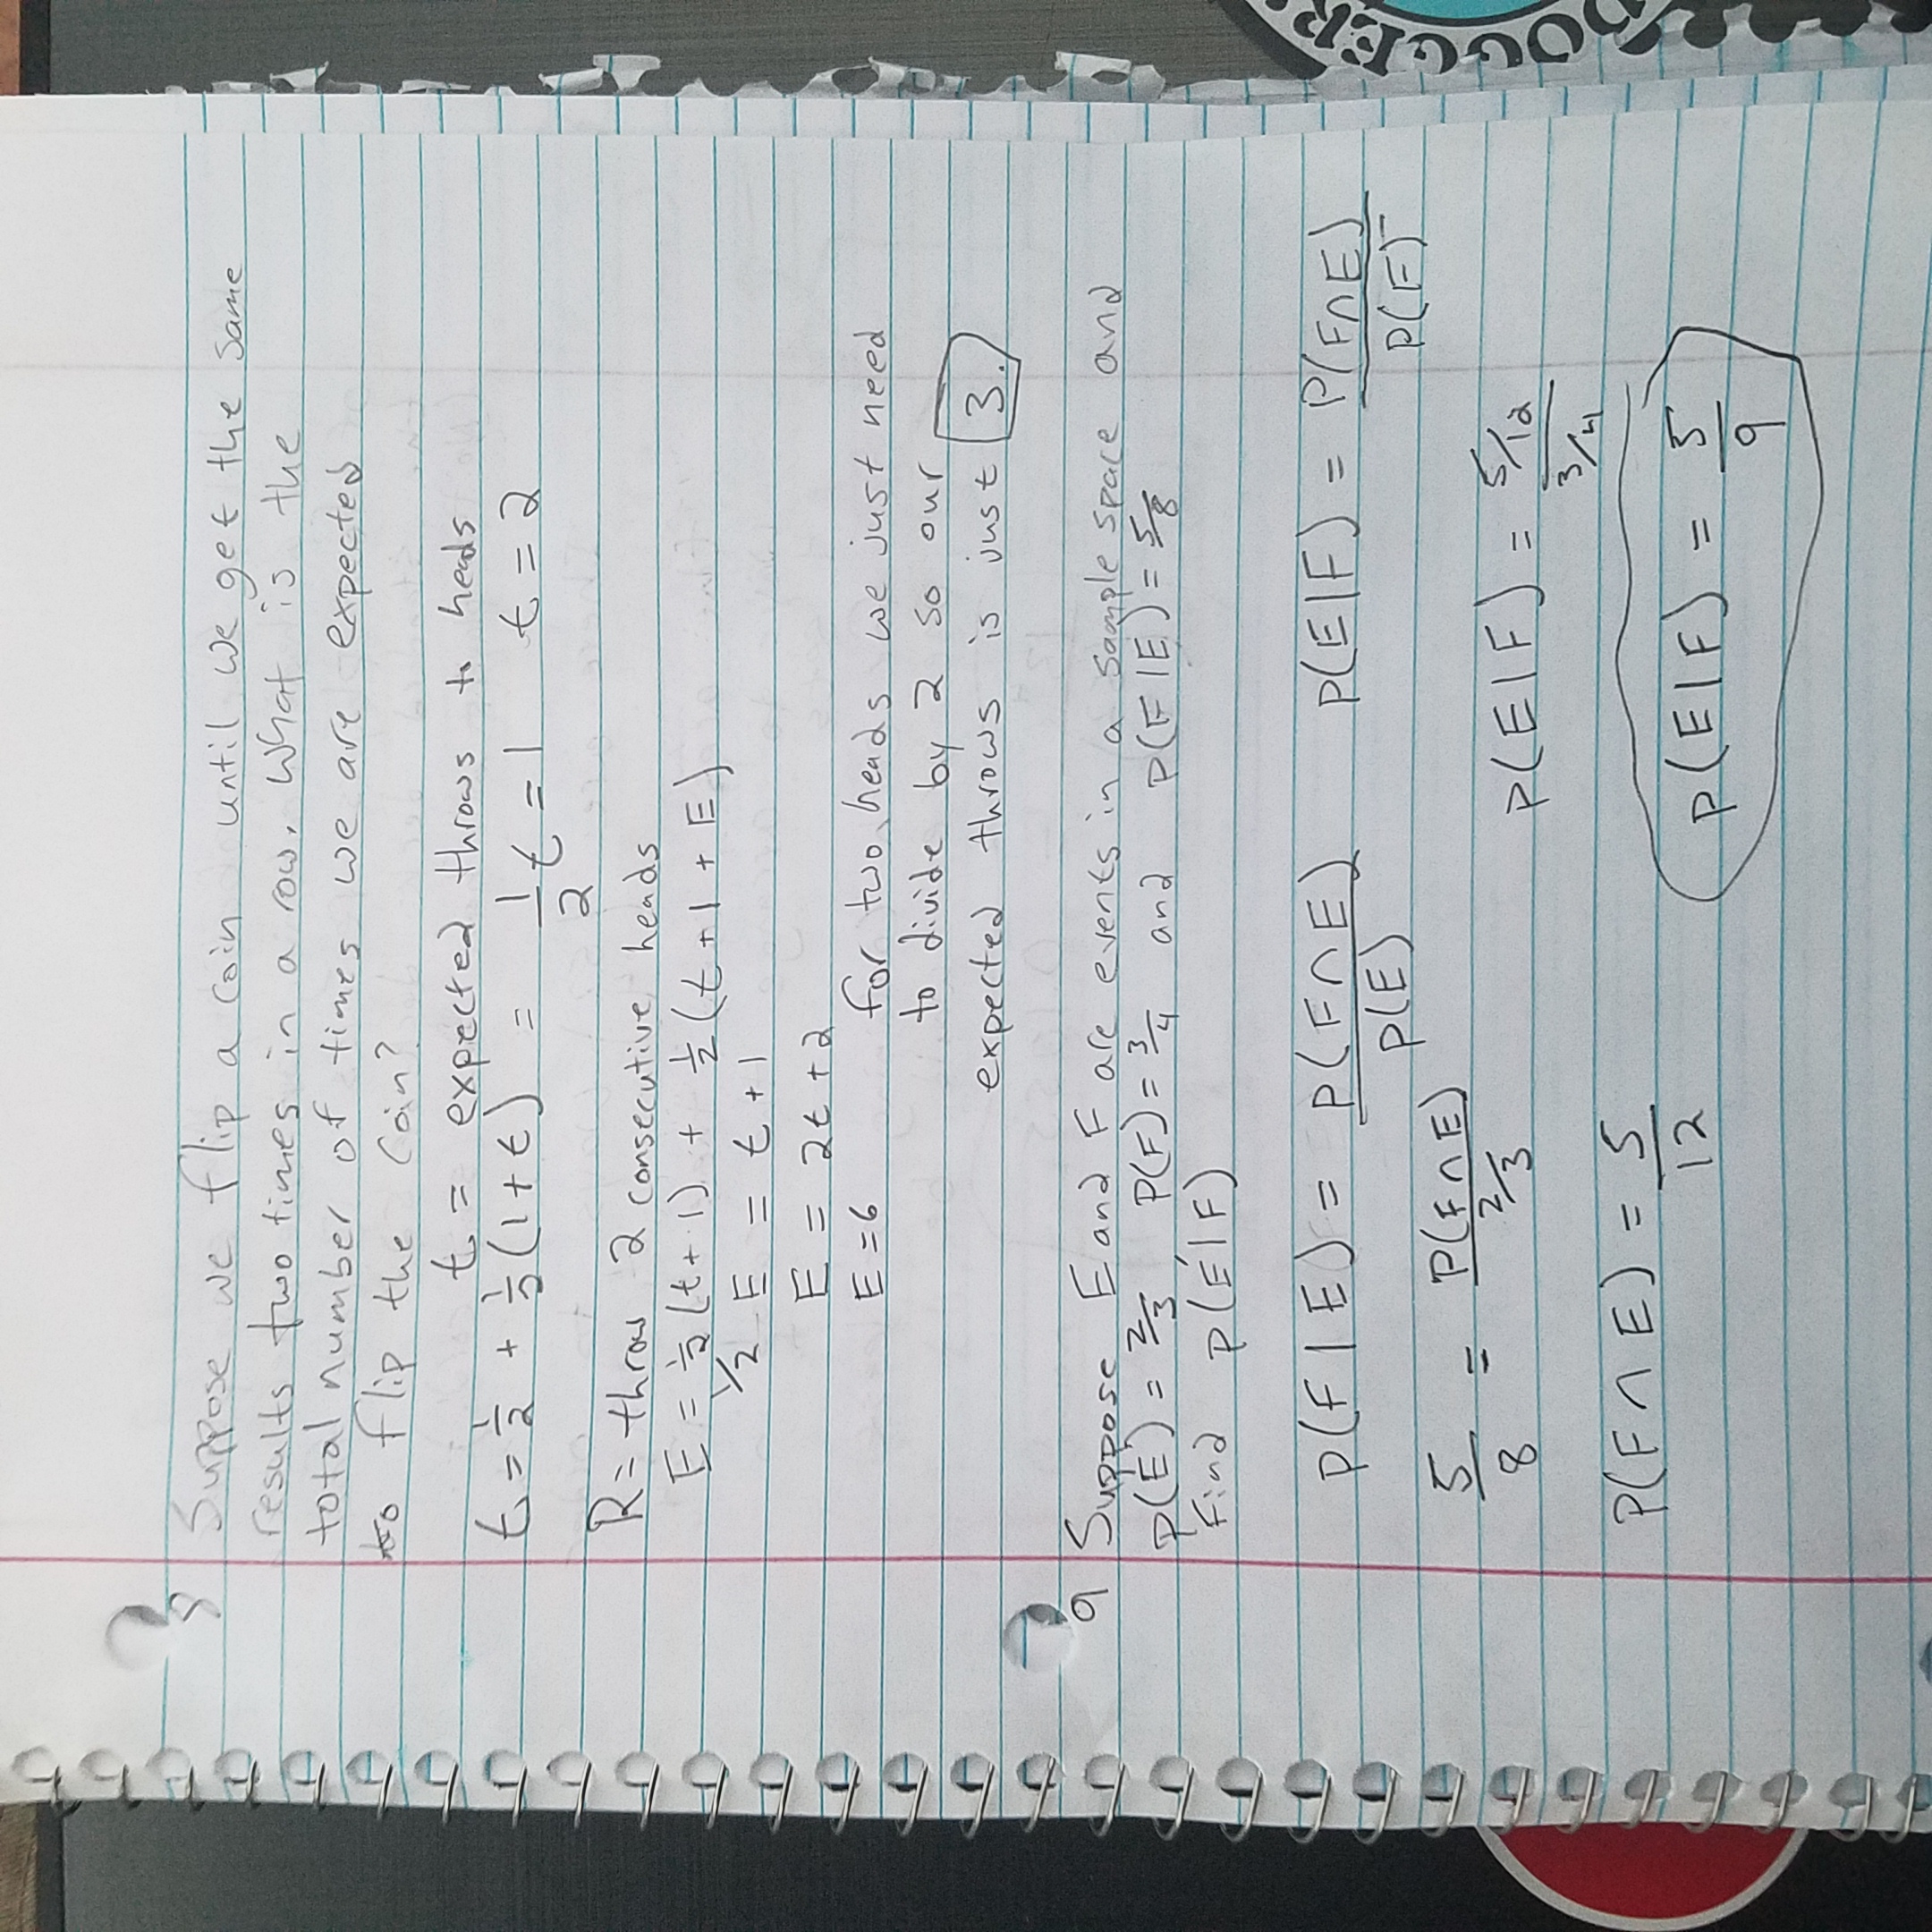 8 Suppose we flip a coin until we get the same
results two times in a row. What is the
total number of times we are expected
to flip the coin?
t = expected throws to heads
t = 1/2 + 1/2 (1+t) = 1/2 t = 1 t = 2
R = throw 2 consecutive heads
E = 1/2 (t+1) + 1/2 (t+1+E)
1/2 E = t+1
E = 2t+2
E = 6 for two heads we just need
to divide by 2 so our
expected throws is just 3.
9 Suppose E and F are events in a sample space and
p(E) = 2/3, P(F) = 3/4 and p(F|E) = 5/8
Find p(E|F)
p(F|E) = p(F∩E)/p(E) p(E|F) = P(F∩E)/P(F)
5/8 = P(F∩E)/2/3
p(E|F) = 5/12/3/4
P(F∩E) = 5/12
p(E|F) = 5/9